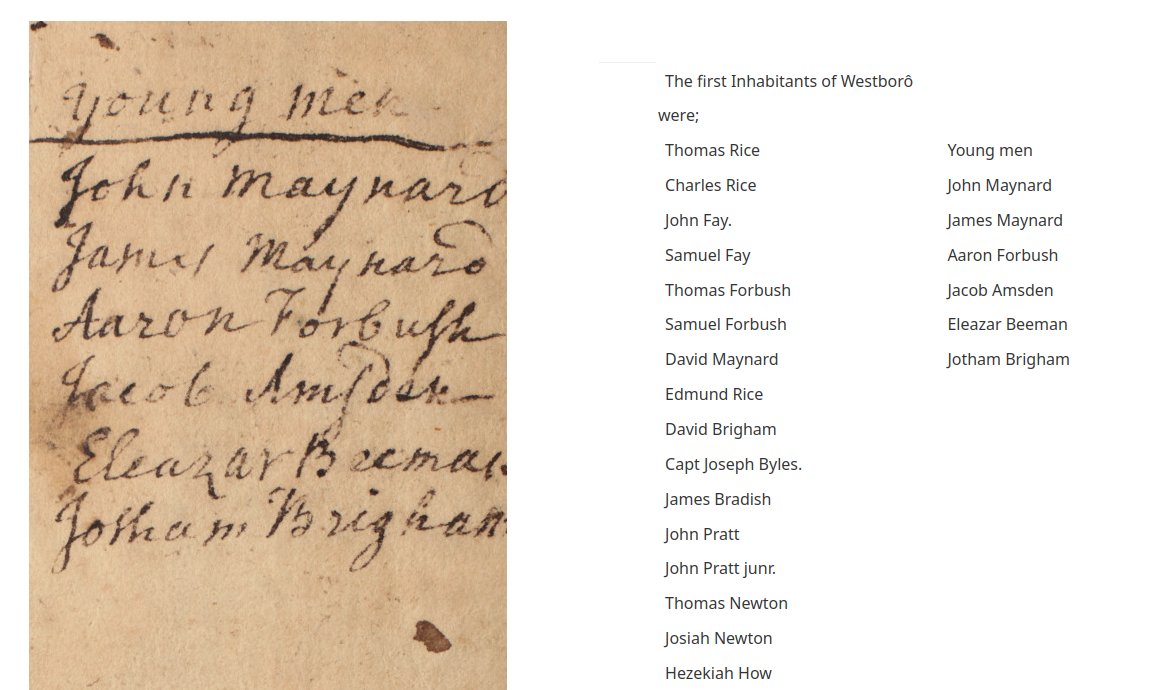 Young men
John Maynard
James Maynard
Aaron Forbush
Jacob Amsden
Eleazar Beeman
Jotham Brigham
The first Inhabitants of Westborô
were;
Thomas Rice
Charles Rice
John Fay.
Samuel Fay
Thomas Forbush
Samuel Forbush
David Maynard
Edmund Rice
David Brigham
Capt Joseph Byles.
James Bradish
John Pratt
John Pratt junr.
Thomas Newton
Josiah Newton
Hezekiah How
Young men
John Maynard
James Maynard
Aaron Forbush
Jacob Amsden
Eleazar Beeman
Jotham Brigham